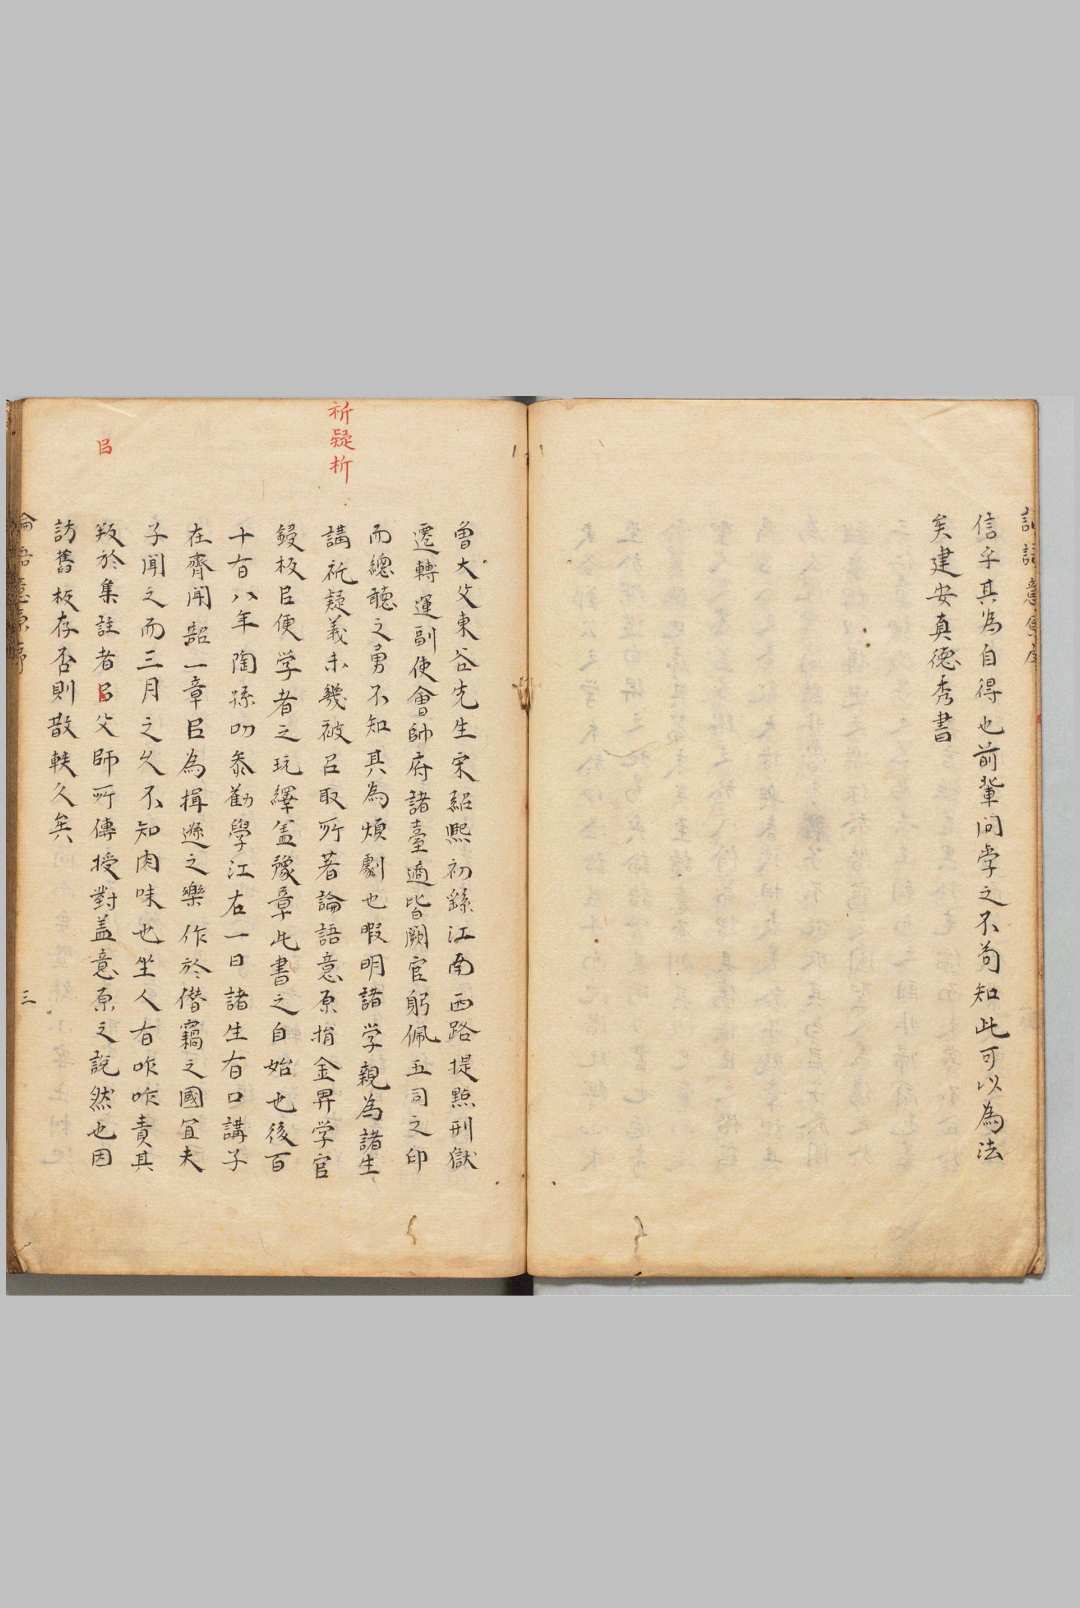 信乎其為自得也前輩問学之不苟知此可以為法
矣建安真德秀書
曾大父東谷先生宋紹熙初繇江南西路提㸃刑獄
遷轉運副使會帥府諸臺適皆闕官躬佩五司之印
而總聽之勇不知其為煩劇也暇明諸学親為諸生
講祈疑義未幾被召取所著論語意原捐金昇学官
鋟板㠯便学者之玩繹盖豫章此書之自始也後百
十有八年陶孫叨忝勸學江右一日諸生有口講子
在齊聞韶一章㠯為揖遜之樂作於僭竊之國宜夫
子聞之而三月之久不知肉味也坐人有咋咋責其
叛於集註者㠯父師所傳授對盖意原之說然也因
訪舊板存否則散軼久矣
祈疑析
㠯
論語意原序
三